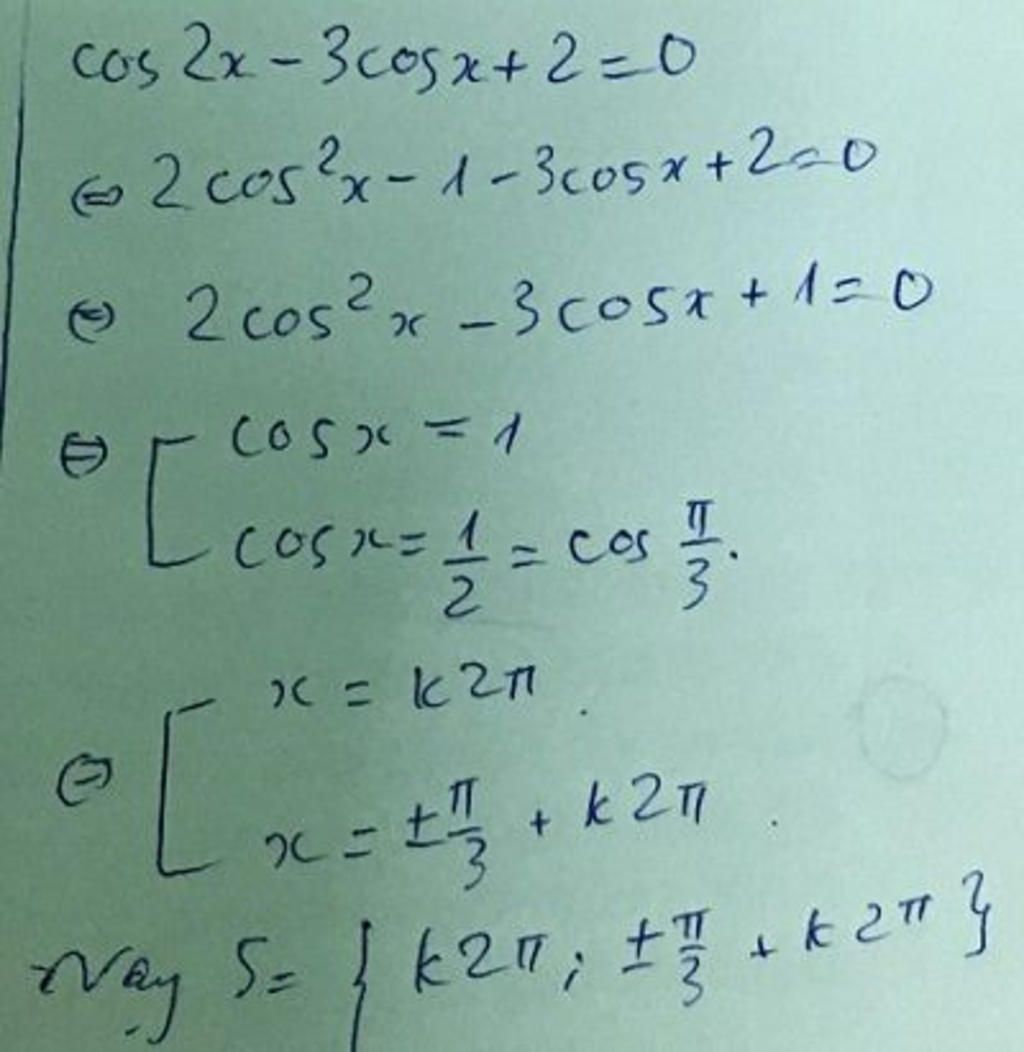 cos 2x - 3cosx + 2 = 0
⇔ 2 cos²x - 1 - 3cosx + 2 = 0
⇔ 2cos²x - 3cosx + 1 = 0
⇔ [ cosx = 1
cosx = 1/2 = cos π/3.
⇔ [ x = k2π.
x = ±π/3 + k2π.
Vậy S = { k2π; ±π/3 + k2π }